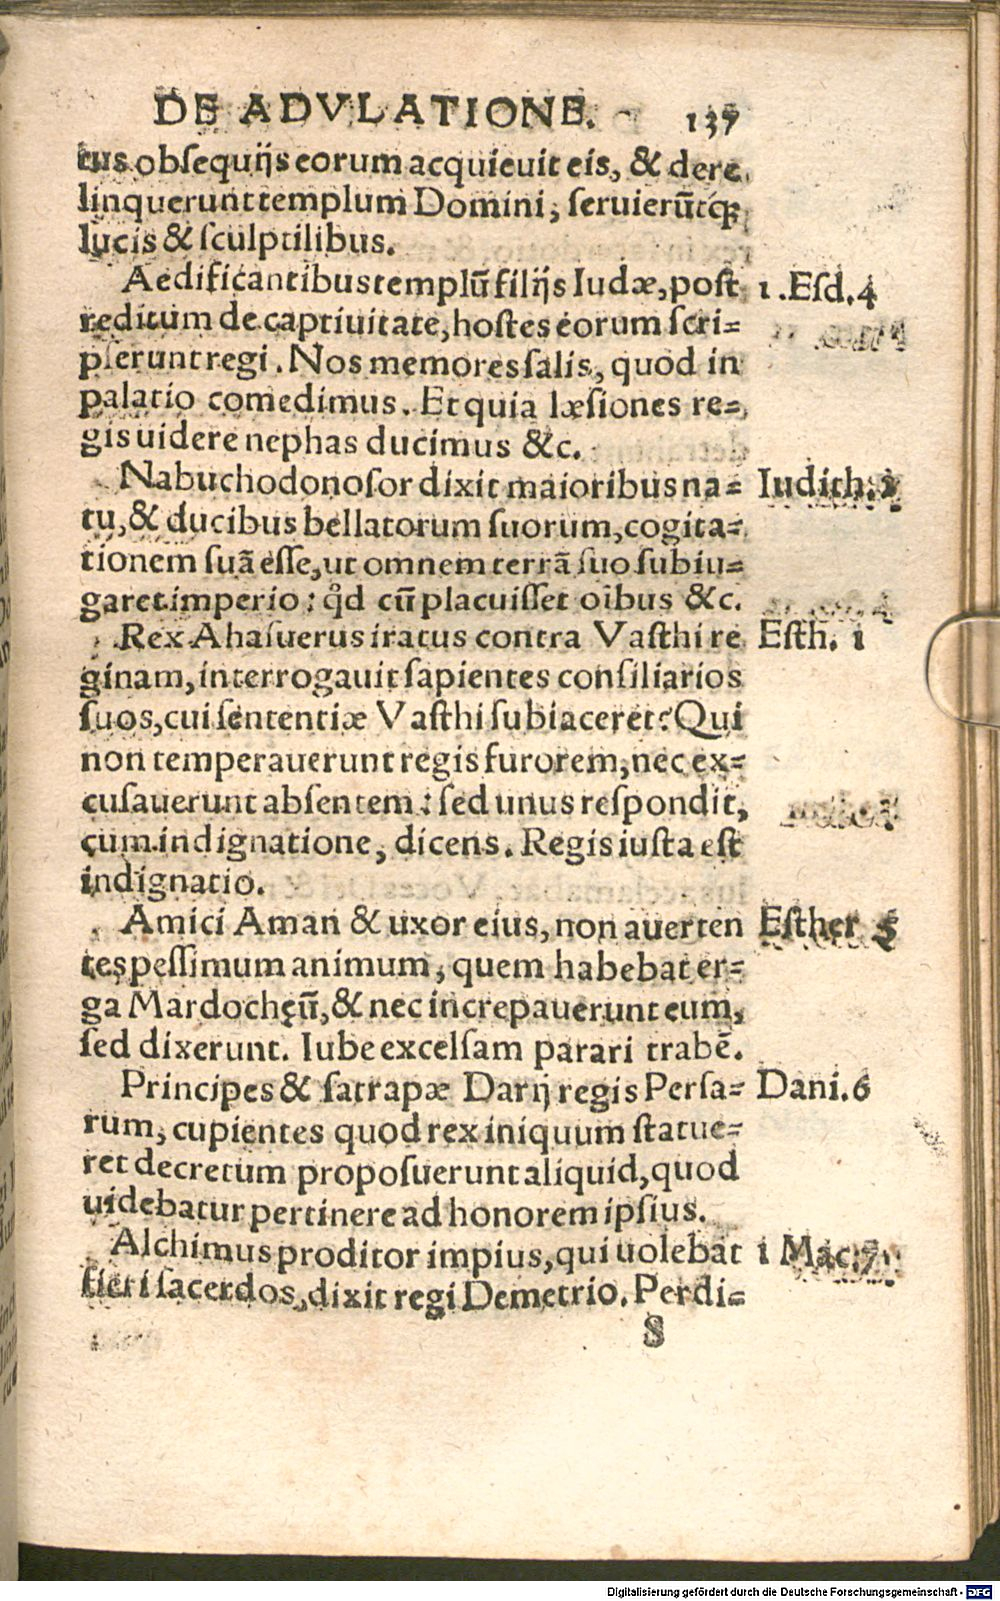 DE ADVLATIONE. 137
tus obsequijs eorum acquieuit eis, & dere
linquerunt templum Domini, seruierũtq́;
lucis & sculptilibus.
Aedificantibus templũ filijs Iudæ, post 1. Esd. 4
reditum de captiuitate, hostes eorum scri-
pserunt regi. Nos memores salis, quod in
palatio comedimus. Et quia læsiones re-
gis uidere nephas ducimus &c.
Nabuchodonosor dixit maioribus na- Iudith. 2
tu, & ducibus bellatorum suorum, cogita-
tionem suã esse, ut omnem terrã suo subiu-
garet imperio: qd̉ cũ placuisset oĩbus &c.
Rex Ahasuerus iratus contra Vasthi re Esth. 1
ginam, interrogauit sapientes consiliarios
suos, cui sententiæ Vasthi subiaceret? Qui
non temperauerunt regis furorem, nec ex-
cusauerunt absentem: sed unus respondit,
cum indignatione, dicens. Regis iusta est
indignatio.
Amici Aman & uxor eius, non auerten Esther 5
tes pessimum animum, quem habebat er-
ga Mardochęũ, & nec increpauerunt eum,
sed dixerunt. Iube excelsam parari trabẽ.
Principes & satrapæ Darij regis Persa- Dani. 6
rum, cupientes quod rex iniquum statue-
ret decretum proposuerunt aliquid, quod
uidebatur pertinere ad honorem ipsius.
Alchimus proditor impius, qui uolebat 1 Mac. 7
fieri sacerdos, dixit regi Demetrio. Perdi-
S
Digitalisierung gefördert durch die Deutsche Forschungsgemeinschaft - DFG